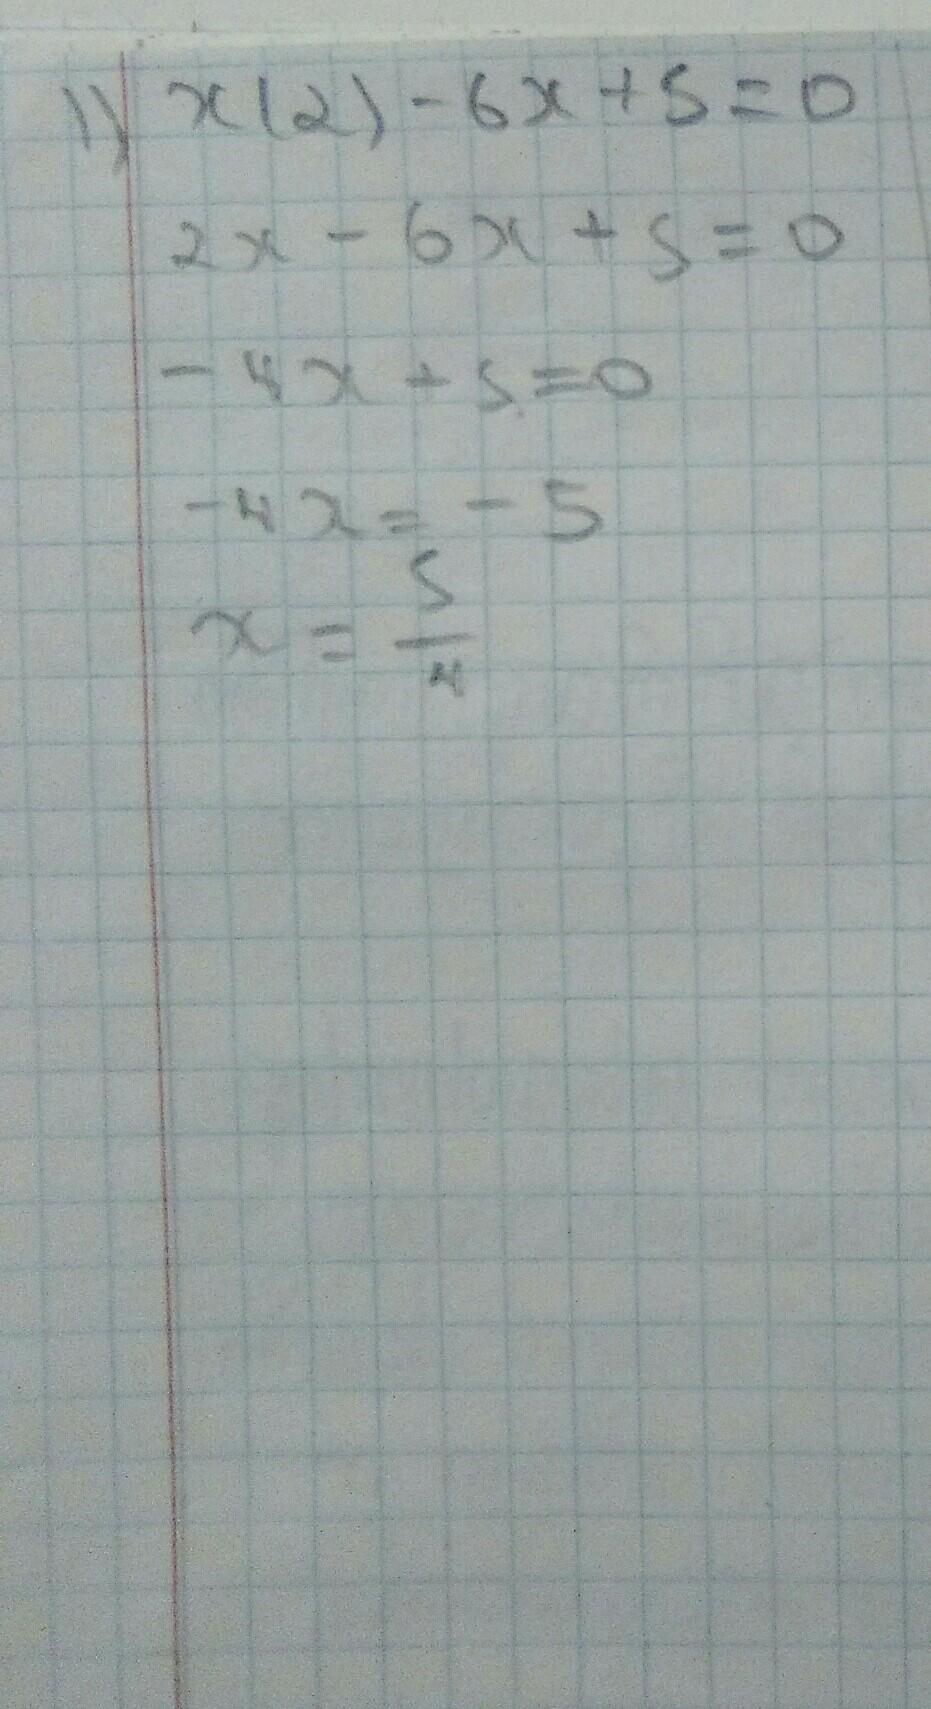 1) x(2) - 6x + 5 = 0
2x - 6x + 5 = 0
- 4x + 5 = 0
- 4x = - 5
x = 5/4